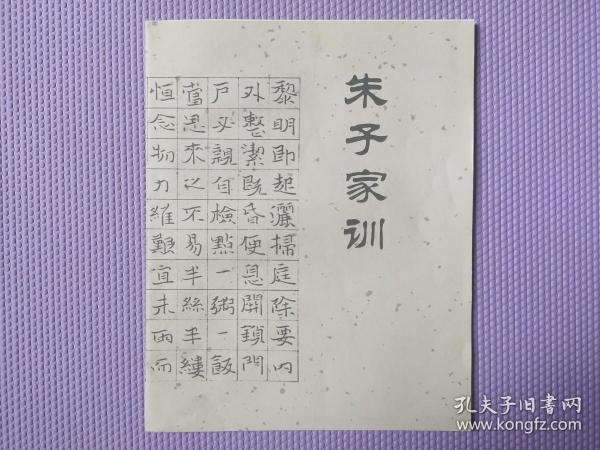 朱子家训
黎明即起灑掃庭除要内
外整潔既昏便息開鎖門
戶必親自檢點一粥一飯
當思來之不易半絲半縷
恒念物力維艱宜未雨而
孔夫子旧书网
www.kongfz.com